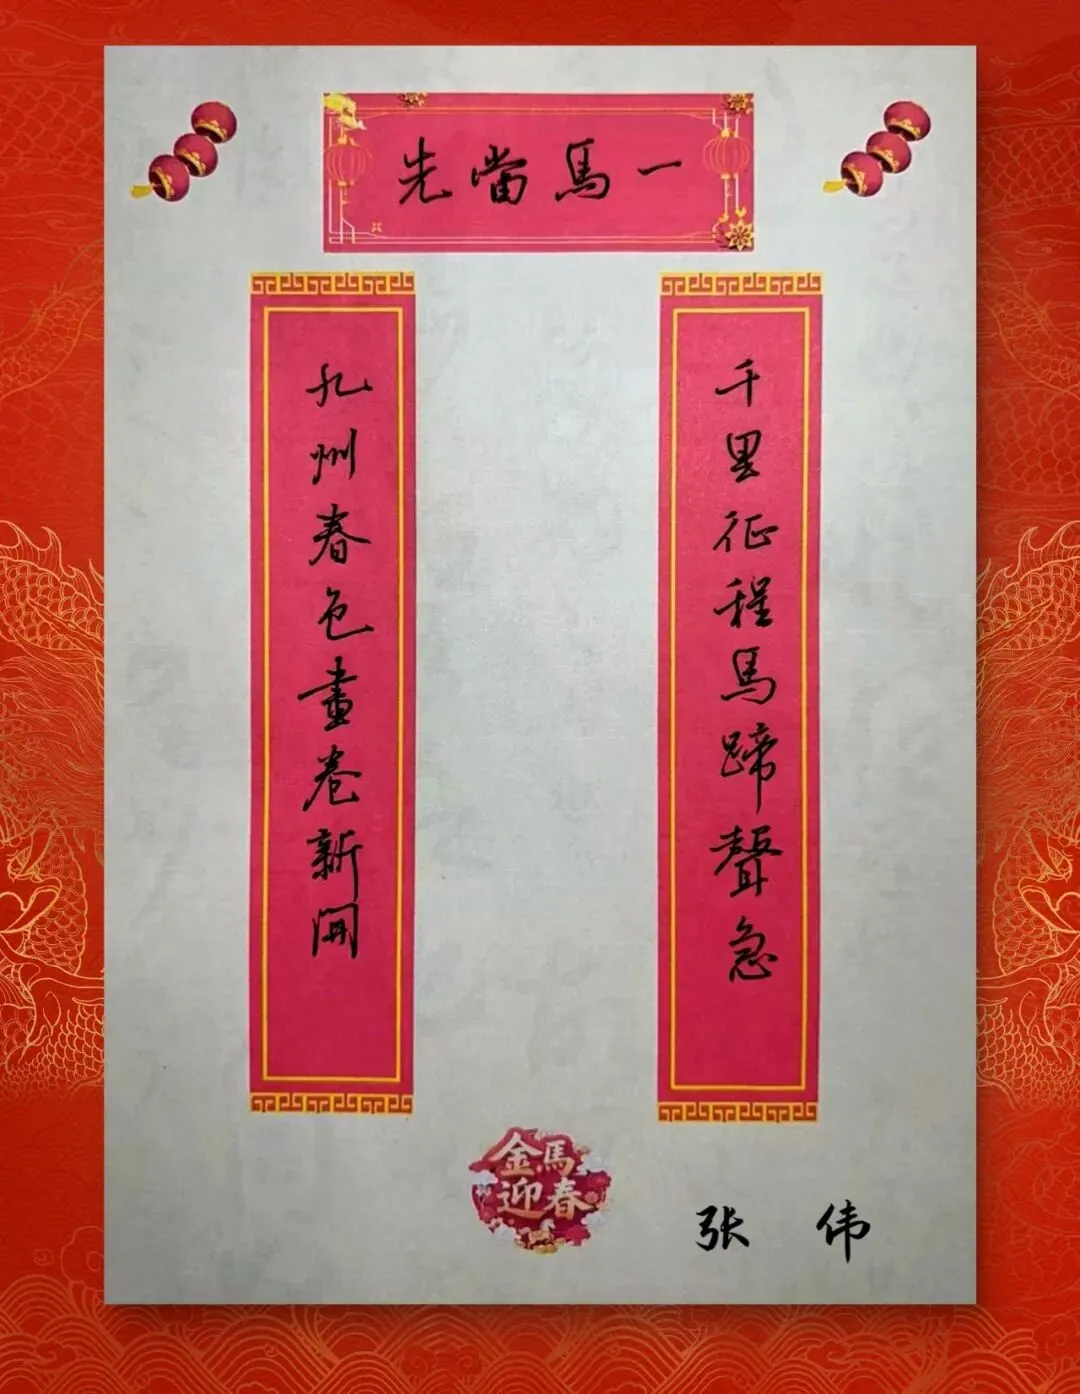 一馬當先
千里征程馬蹄聲急
九州春色畫卷新開
金馬
迎春
张 伟